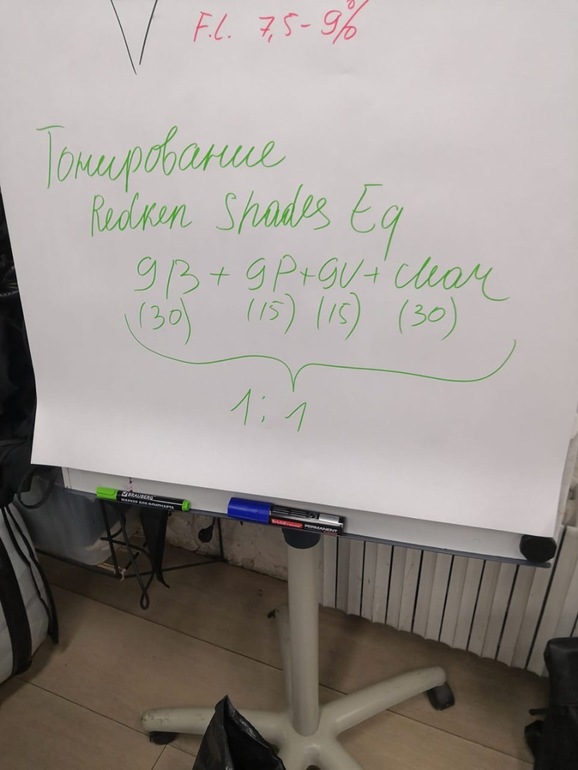 F.L. 7,5-9%
Тонирование
Redken Shades Eq
9B + 9P+9V+ clear
(30) (15) (15) (30)
1:1
BRAUBERG
МАРКЕР ДЛЯ ФЛИПЧАРТА
PERMANENT